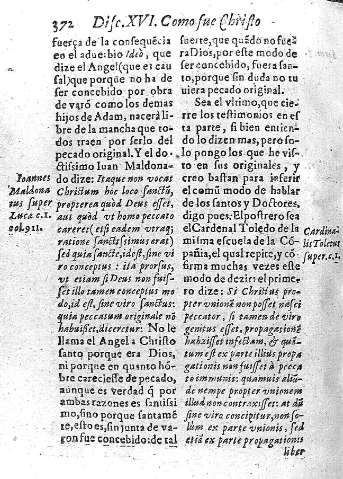 372 Disc.XVI. Como fue Christo
fuerça de la consequẽcia
en el aduerbio Ideò, que
dize el Angel (que es cau
sal) que porque no ha de
ser concebido por obra
de varõ como los demas
hijos de Adam, nacerà li-
bre de la mancha que to-
dos traen por serlo del
pecado original. Y el do-
ctissimo Iuan Maldona-
do dize: Itaque non vocat
Christum hic loco sanctũ,
propterea quòd Deus esset,
aut quòd vt homo peccato
careret (etsi eadem vtraq;
ratione sanctissimus erat)
sed quia sancte, idest, sine vi
ro conceptus: ita prorsus,
vt etiam si Deus non fuis-
set illo tamen conceptus mo
do, id est, sine viro sanctus:
quia peccatum originale nõ
habuisset, diceretur: No le
llama el Angel a Christo
santo porque era Dios,
ni porque en quanto hõ-
bre careciesse de pecado,
aunque es verdad q̃ por
ambas razones es santissi
mo, sino porque santamẽ
te, esto es, sin junta de va-
ron fue concebido: de tal
Ioannes
Maldona
tus super
Luca c.1.
col.911.
suerte, que quãdo no fue
ra Dios, por este modo de
ser concebido, fuera san-
to, porque sin duda no tu
uiera pecado original.
Sea el vltimo, que cie-
rre los testimonios en es
ta parte, si bien entien-
do lo dizen mas, pero so-
lo pongo los que he vis-
to en sus originales, y
creo bastan para inferir
el comũ modo de hablar
de los santos y Doctores,
digo pues: El postrero sea
el Cardenal Toledo de la
misma escuela de la Cõ-
pañia, el qual repite, y cõ
firma muchas vezes este
modo de dezir: el prime-
ro dize: Si Christus pro-
pter vnionẽ non posset nasci
peccator, si tamen de viro
genitus esset, propagationẽ
habuisset infectam, & quã-
tum est ex parte illius propa
gationis non fuisset à pecca
to immunis: quamuis aliũ-
de nempe propter vnionem
illud non contraxisset: at dũ
sine viro concipitur, non so-
lùm ex parte vnionis, sed
etiã ex parte propagationis
Cardina-
lis Toletus
super.c.1.
liber